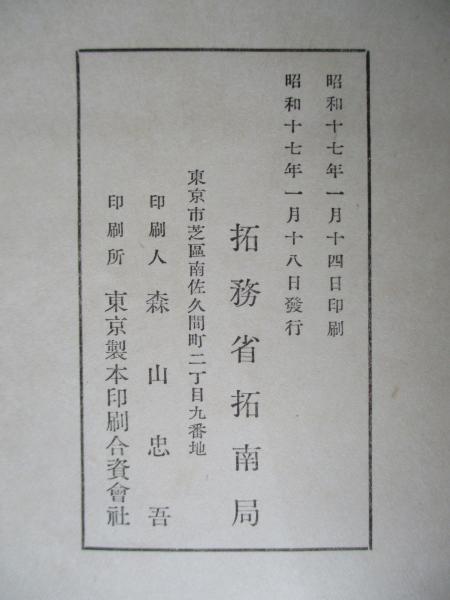 昭和十七年一月十四日印刷
昭和十七年一月十八日發行
拓務省拓南局
東京市芝區南佐久間町二丁目九番地
印刷人 森山忠吾
印刷所 東京製本印刷合資會社